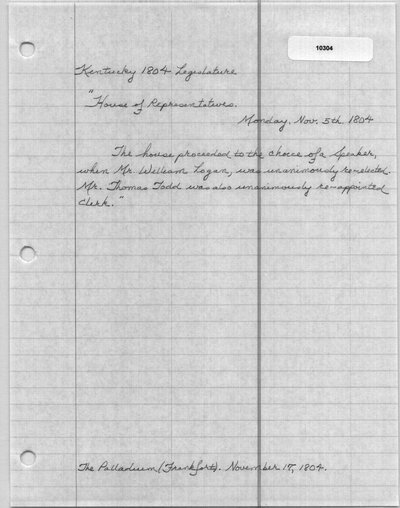 10304
Kentucky 1804 Legislature
"House of Representatives.
Monday, Nov. 5th 1804
The house proceeded to the choice of a Speaker,
when Mr. William Logan, was unanimously re-elected.
Mr. Thomas Todd was also unanimously re-appointed
Clerk."
The Palladium (Frankfort). November 17, 1804.